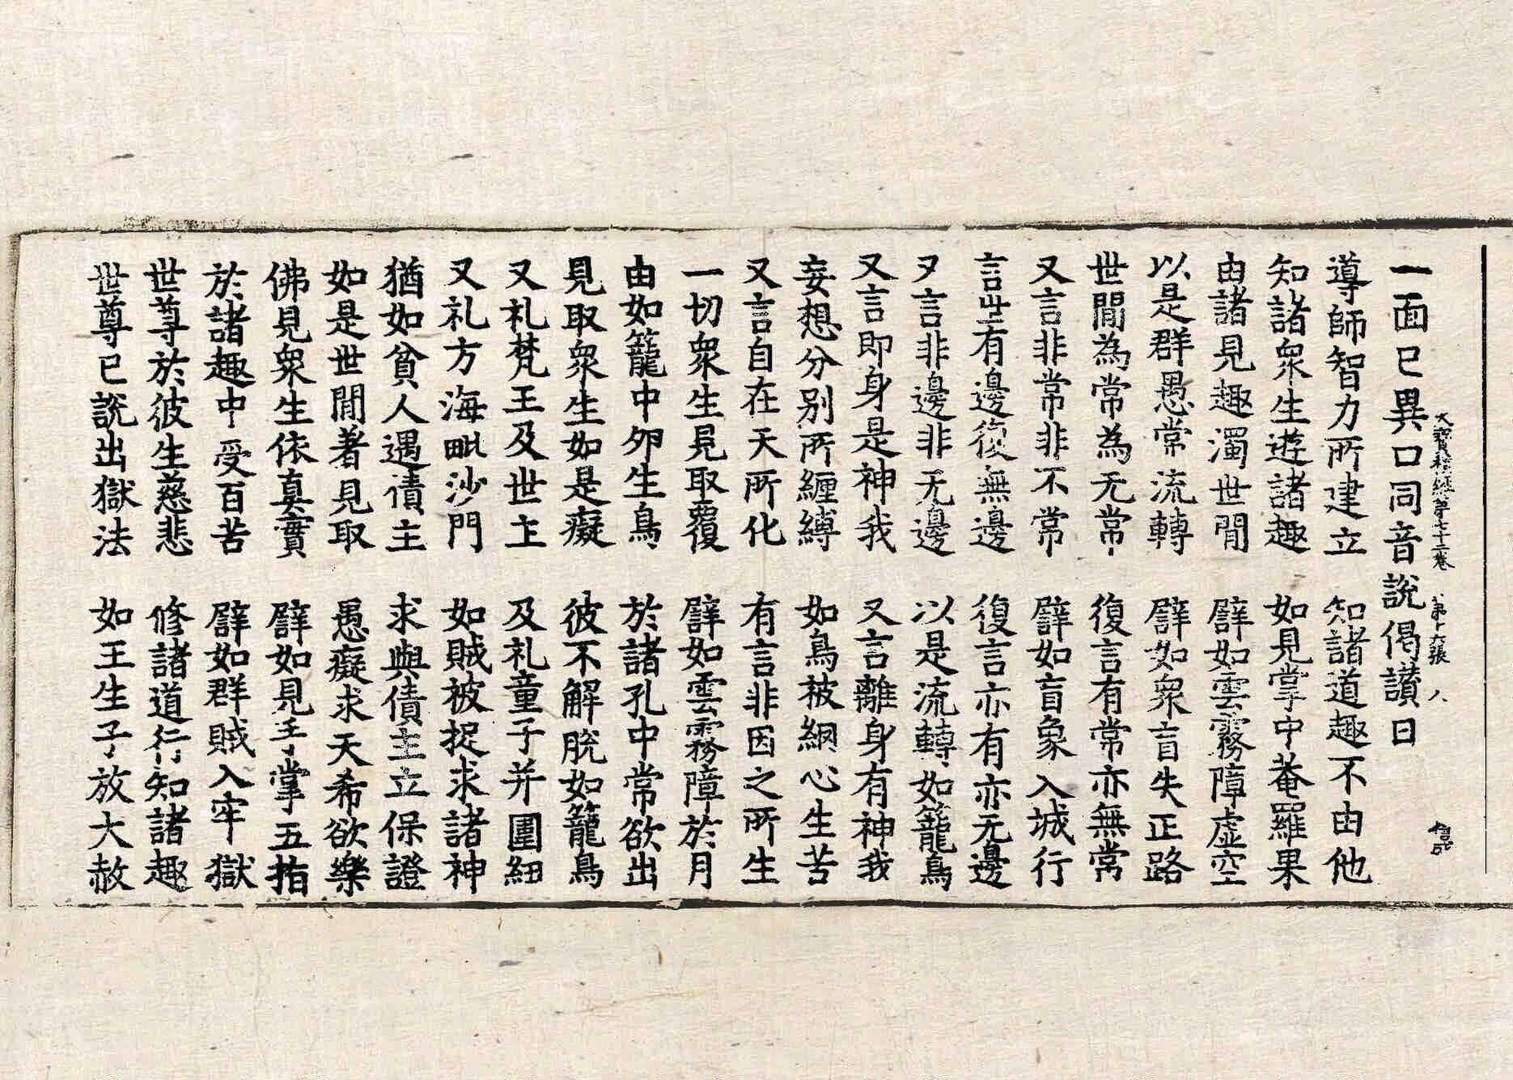 大寶積經第七十二卷 第十六張 八
一面已異口同音說偈讃曰
導師智力所建立 知諸道趣不由他
知諸衆生遊諸趣 如見掌中菴羅果
由諸見趣濁世閒 譬如雲霧障虛空
以是群愚常流轉 譬如衆盲失正路
世閒為常為无常 復言有常亦無常
又言非常非不常 譬如盲象入城行
言世有邊復無邊 復言亦有亦无邊
又言非邊非无邊 以是流轉如籠鳥
又言即身是神我 又言離身有神我
妄想分别所纏縛 如鳥被網心生苦
又言自在天所化 有言非因之所生
一切衆生見取覆 譬如雲霧障於月
由如籠中夘生鳥 於諸孔中常欲出
見取衆生如是癡 彼不解脫如籠鳥
又礼梵王及世主 及礼童子并圍紐
又礼方海毗沙門 如賊被捉求諸神
猶如貧人遇債主 求與債主立保證
如是世閒著見取 愚癡求天希欲樂
佛見衆生依真實 譬如見手掌五指
於諸趣中受百苦 譬如群賊入牢獄
世尊於彼生慈悲 修諸道行知諸趣
世尊已說出獄法 如王生子放大赦